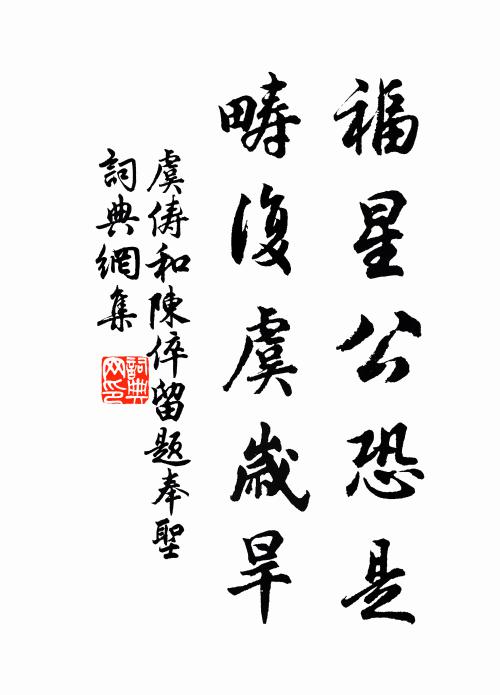 福星公恐是
疇復虞歲旱
虞儔和陳倅留題奉聖
詞典網集
詞典網印